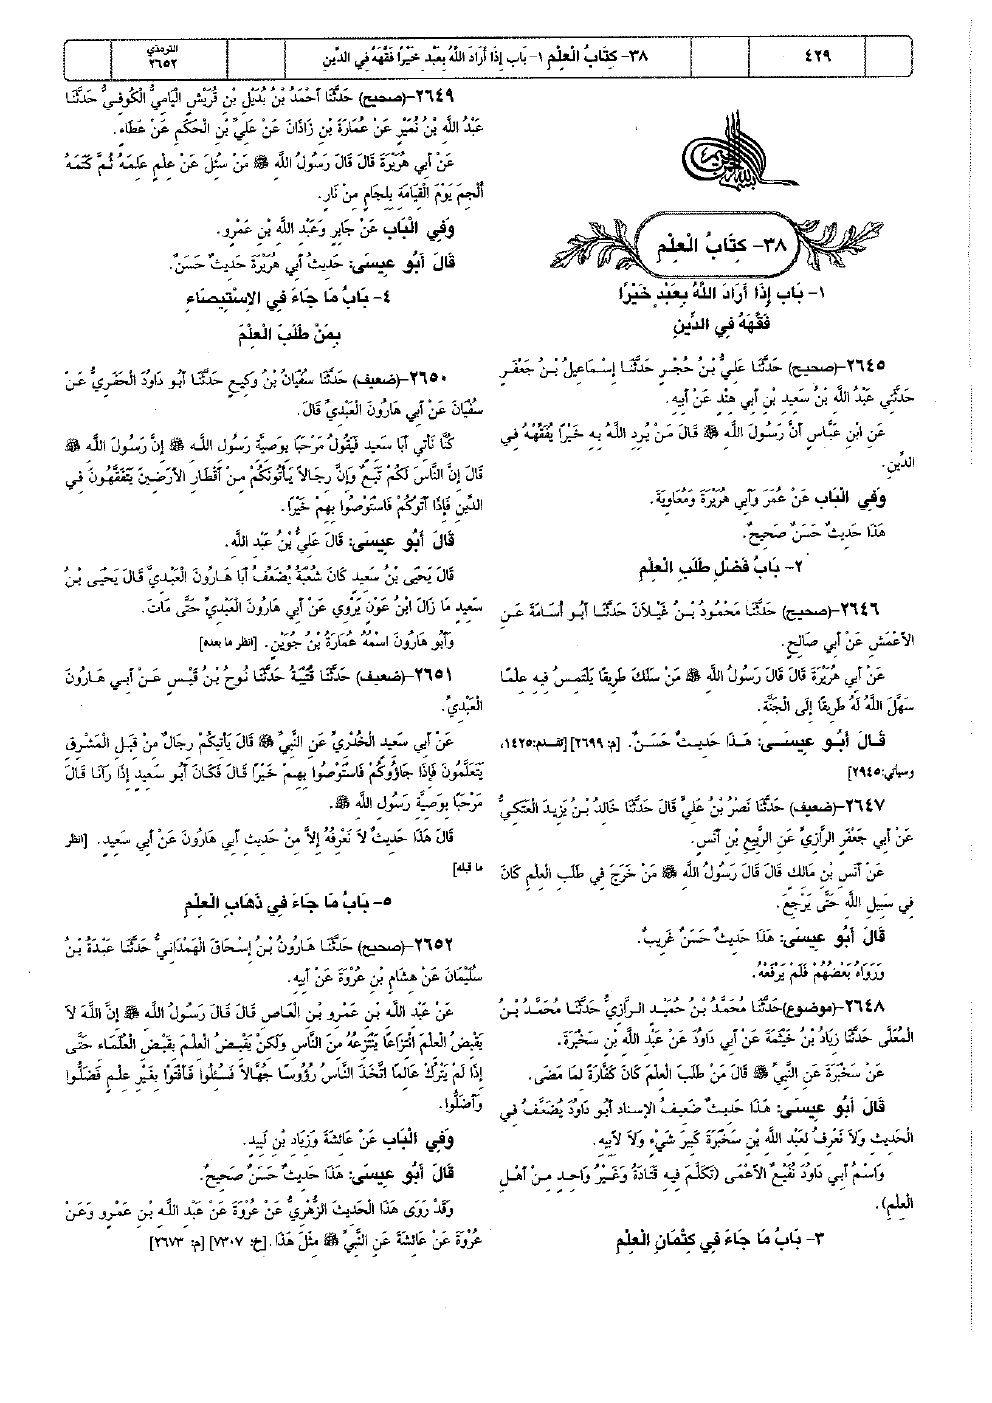 ٤٢٩
٣٨- كِتَابُ الْعِلْمِ ١- بَاب إِذَا أَرَادَ اللَّهُ بِعَبْدٍ خَيْرًا فَقَّهَهُ فِي الدِّينِ
الترمذي
٢٦٥٢
٣٨- كِتَابُ الْعِلْمِ
١- بَاب إِذَا أَرَادَ اللَّهُ بِعَبْدٍ خَيْرًا
فَقَّهَهُ فِي الدِّينِ
٢٦٤٥-(صحيح) حَدَّثَنَا عَلِيُّ بْنُ حُجْرٍ حَدَّثَنَا إِسْمَاعِيلُ بْنُ جَعْفَرٍ
حَدَّثَنِي عَبْدُ اللَّهِ بْنُ سَعِيدِ بْنِ أَبِي هِنْدٍ عَنْ أَبِيهِ.
عَنِ ابْنِ عَبَّاسٍ أَنَّ رَسُولَ اللَّهِ ﷺ قَالَ مَنْ يُرِدِ اللَّهُ بِهِ خَيْرًا يُفَقِّهْهُ فِي
الدِّينِ.
وَفِي الْبَاب عَنْ عُمَرَ وَأَبِي هُرَيْرَةَ وَمُعَاوِيَةَ.
هَذَا حَدِيثٌ حَسَنٌ صَحِيحٌ.
٢- بَابُ فَضْلِ طَلَبِ الْعِلْمِ
٢٦٤٦-(صحيح) حَدَّثَنَا مَحْمُودُ بْنُ غَيْلَانَ حَدَّثَنَا أَبُو أُسَامَةَ عَنِ
الأَعْمَشِ عَنْ أَبِي صَالِحٍ.
عَنْ أَبِي هُرَيْرَةَ قَالَ قَالَ رَسُولُ اللَّهِ ﷺ مَنْ سَلَكَ طَرِيقًا يَلْتَمِسُ فِيهِ عِلْمًا
سَهَّلَ اللَّهُ لَهُ طَرِيقًا إِلَى الْجَنَّةِ.
قَالَ أَبُو عِيسَى: هَذَا حَدِيثٌ حَسَنٌ. [م: ٢٦٩٩] [تقدم: ١٤٢٥،
وسيأتي: ٢٩٤٥]
٢٦٤٧-(ضعيف) حَدَّثَنَا نَصْرُ بْنُ عَلِيٍّ قَالَ حَدَّثَنَا خَالِدُ بْنُ يَزِيدَ الْعَتَكِيُّ
عَنْ أَبِي جَعْفَرٍ الرَّازِيِّ عَنِ الرَّبِيعِ بْنِ أَنَسٍ.
عَنْ أَنَسِ بْنِ مَالِكٍ قَالَ قَالَ رَسُولُ اللَّهِ ﷺ مَنْ خَرَجَ فِي طَلَبِ الْعِلْمِ كَانَ
فِي سَبِيلِ اللَّهِ حَتَّى يَرْجِعَ.
قَالَ أَبُو عِيسَى: هَذَا حَدِيثٌ حَسَنٌ غَرِيبٌ.
وَرَوَاهُ بَعْضُهُمْ فَلَمْ يَرْفَعْهُ.
٢٦٤٨-(موضوع)حَدَّثَنَا مُحَمَّدُ بْنُ حُمَيْدٍ الرَّازِيُّ حَدَّثَنَا مُحَمَّدُ بْنُ
الْمُعَلَّى حَدَّثَنَا زِيَادُ بْنُ خَيْثَمَةَ عَنْ أَبِي دَاوُدَ عَنْ عَبْدِ اللَّهِ بْنِ سَخْبَرَةَ.
عَنْ سَخْبَرَةَ عَنِ النَّبِيِّ ﷺ قَالَ مَنْ طَلَبَ الْعِلْمَ كَانَ كَفَّارَةً لِمَا مَضَى.
قَالَ أَبُو عِيسَى: هَذَا حَدِيثٌ ضَعِيفُ الإِسْنَادِ أَبُو دَاوُدَ يُضَعَّفُ فِي
الْحَدِيثِ وَلاَ نَعْرِفُ لِعَبْدِ اللَّهِ بْنِ سَخْبَرَةَ كَبِيرَ شَيْءٍ وَلاَ لأَبِيهِ.
وَاسْمُ أَبِي دَاوُدَ نُفَيْعٌ الأَعْمَى (تَكَلَّمَ فِيهِ قَتَادَةُ وَغَيْرُ وَاحِدٍ مِنْ أَهْلِ
الْعِلْمِ).
٣- بَابُ مَا جَاءَ فِي كِتْمَانِ الْعِلْمِ
٢٦٤٩-(صحيح) حَدَّثَنَا أَحْمَدُ بْنُ بُدَيْلِ بْنِ قُرَيْشٍ الْيَامِيُّ الْكُوفِيُّ حَدَّثَنَا
عَبْدُ اللَّهِ بْنُ نُمَيْرٍ عَنْ عُمَارَةَ بْنِ زَاذَانَ عَنْ عَلِيِّ بْنِ الْحَكَمِ عَنْ عَطَاءٍ.
عَنْ أَبِي هُرَيْرَةَ قَالَ قَالَ رَسُولُ اللَّهِ ﷺ مَنْ سُئِلَ عَنْ عِلْمٍ عَلِمَهُ ثُمَّ كَتَمَهُ
أُلْجِمَ يَوْمَ الْقِيَامَةِ بِلِجَامٍ مِنْ نَارٍ.
وَفِي الْبَاب عَنْ جَابِرٍ وَعَبْدِ اللَّهِ بْنِ عَمْرٍو.
قَالَ أَبُو عِيسَى: حَدِيثُ أَبِي هُرَيْرَةَ حَدِيثٌ حَسَنٌ.
٤- بَابُ مَا جَاءَ فِي الإِسْتِيصَاءِ
بِمَنْ طَلَبَ الْعِلْمَ
٢٦٥٠-(ضعيف) حَدَّثَنَا سُفْيَانُ بْنُ وَكِيعٍ حَدَّثَنَا أَبُو دَاوُدَ الْحَفَرِيُّ عَنْ
سُفْيَانَ عَنْ أَبِي هَارُونَ الْعَبْدِيِّ قَالَ.
كُنَّا نَأْتِي أَبَا سَعِيدٍ فَيَقُولُ مَرْحَبًا بِوَصِيَّةِ رَسُولِ اللَّهِ ﷺ إِنَّ رَسُولَ اللَّهِ ﷺ
قَالَ إِنَّ النَّاسَ لَكُمْ تَبَعٌ وَإِنَّ رِجَالاً يَأْتُونَكُمْ مِنْ أَقْطَارِ الأَرَضِينَ يَتَفَقَّهُونَ فِي
الدِّينِ فَإِذَا أَتَوْكُمْ فَاسْتَوْصُوا بِهِمْ خَيْرًا.
قَالَ أَبُو عِيسَى: قَالَ عَلِيُّ بْنُ عَبْدِ اللَّهِ.
قَالَ يَحْيَى بْنُ سَعِيدٍ كَانَ شُعْبَةُ يُضَعِّفُ أَبَا هَارُونَ الْعَبْدِيَّ قَالَ يَحْيَى بْنُ
سَعِيدٍ مَا زَالَ ابْنُ عَوْنٍ يَرْوِي عَنْ أَبِي هَارُونَ الْعَبْدِيِّ حَتَّى مَاتَ.
وَأَبُو هَارُونَ اسْمُهُ عُمَارَةُ بْنُ جُوَيْنٍ. [انظر ما بعده]
٢٦٥١-(ضعيف) حَدَّثَنَا قُتَيْبَةُ حَدَّثَنَا نُوحُ بْنُ قَيْسٍ عَنْ أَبِي هَارُونَ
الْعَبْدِيِّ.
عَنْ أَبِي سَعِيدٍ الْخُدْرِيِّ عَنِ النَّبِيِّ ﷺ قَالَ يَأْتِيكُمْ رِجَالٌ مِنْ قِبَلِ الْمَشْرِقِ
يَتَعَلَّمُونَ فَإِذَا جَاؤُوكُمْ فَاسْتَوْصُوا بِهِمْ خَيْرًا قَالَ فَكَانَ أَبُو سَعِيدٍ إِذَا رَآنَا قَالَ
مَرْحَبًا بِوَصِيَّةِ رَسُولِ اللَّهِ ﷺ.
قَالَ هَذَا حَدِيثٌ لاَ نَعْرِفُهُ إِلاَّ مِنْ حَدِيثِ أَبِي هَارُونَ عَنْ أَبِي سَعِيدٍ. [انظر
ما قبله]
٥- بَابُ مَا جَاءَ فِي ذَهَابِ الْعِلْمِ
٢٦٥٢-(صحيح) حَدَّثَنَا هَارُونُ بْنُ إِسْحَاقَ الْهَمْدَانِيُّ حَدَّثَنَا عَبْدَةُ بْنُ
سُلَيْمَانَ عَنْ هِشَامِ بْنِ عُرْوَةَ عَنْ أَبِيهِ.
عَنْ عَبْدِ اللَّهِ بْنِ عَمْرِو بْنِ الْعَاصِ قَالَ قَالَ رَسُولُ اللَّهِ ﷺ إِنَّ اللَّهَ لاَ
يَقْبِضُ الْعِلْمَ انْتِزَاعًا يَنْتَزِعُهُ مِنَ النَّاسِ وَلَكِنْ يَقْبِضُ الْعِلْمَ بِقَبْضِ الْعُلَمَاءِ حَتَّى
إِذَا لَمْ يَتْرُكْ عَالِمًا اتَّخَذَ النَّاسُ رُؤُوسًا جُهَّالاً فَسُئِلُوا فَأَفْتَوْا بِغَيْرِ عِلْمٍ فَضَلُّوا
وَأَضَلُّوا.
وَفِي الْبَاب عَنْ عَائِشَةَ وَزِيَادِ بْنِ لَبِيدٍ.
قَالَ أَبُو عِيسَى: هَذَا حَدِيثٌ حَسَنٌ صَحِيحٌ.
وَقَدْ رَوَى هَذَا الْحَدِيثَ الزُّهْرِيُّ عَنْ عُرْوَةَ عَنْ عَبْدِ اللَّهِ بْنِ عَمْرٍو وَعَنْ
عُرْوَةَ عَنْ عَائِشَةَ عَنِ النَّبِيِّ ﷺ مِثْلَ هَذَا. [خ: ٧٣٠٧] [م: ٢٦٧٣]